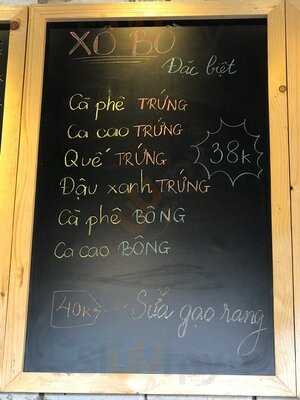 XÔ BỒ
Đặc biệt
Cà phê TRỨNG
Ca cao TRỨNG
Quế TRỨNG
38K
Đậu xanh TRỨNG
Cà phê BÔNG
Ca cao BÔNG
40K Sữa gạo rang